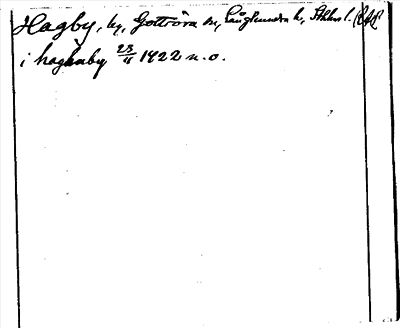 Hagby, by, Gottröra sn, Långhundra h, Sthlms l.
i haghaby 23/11 1422 n.o.